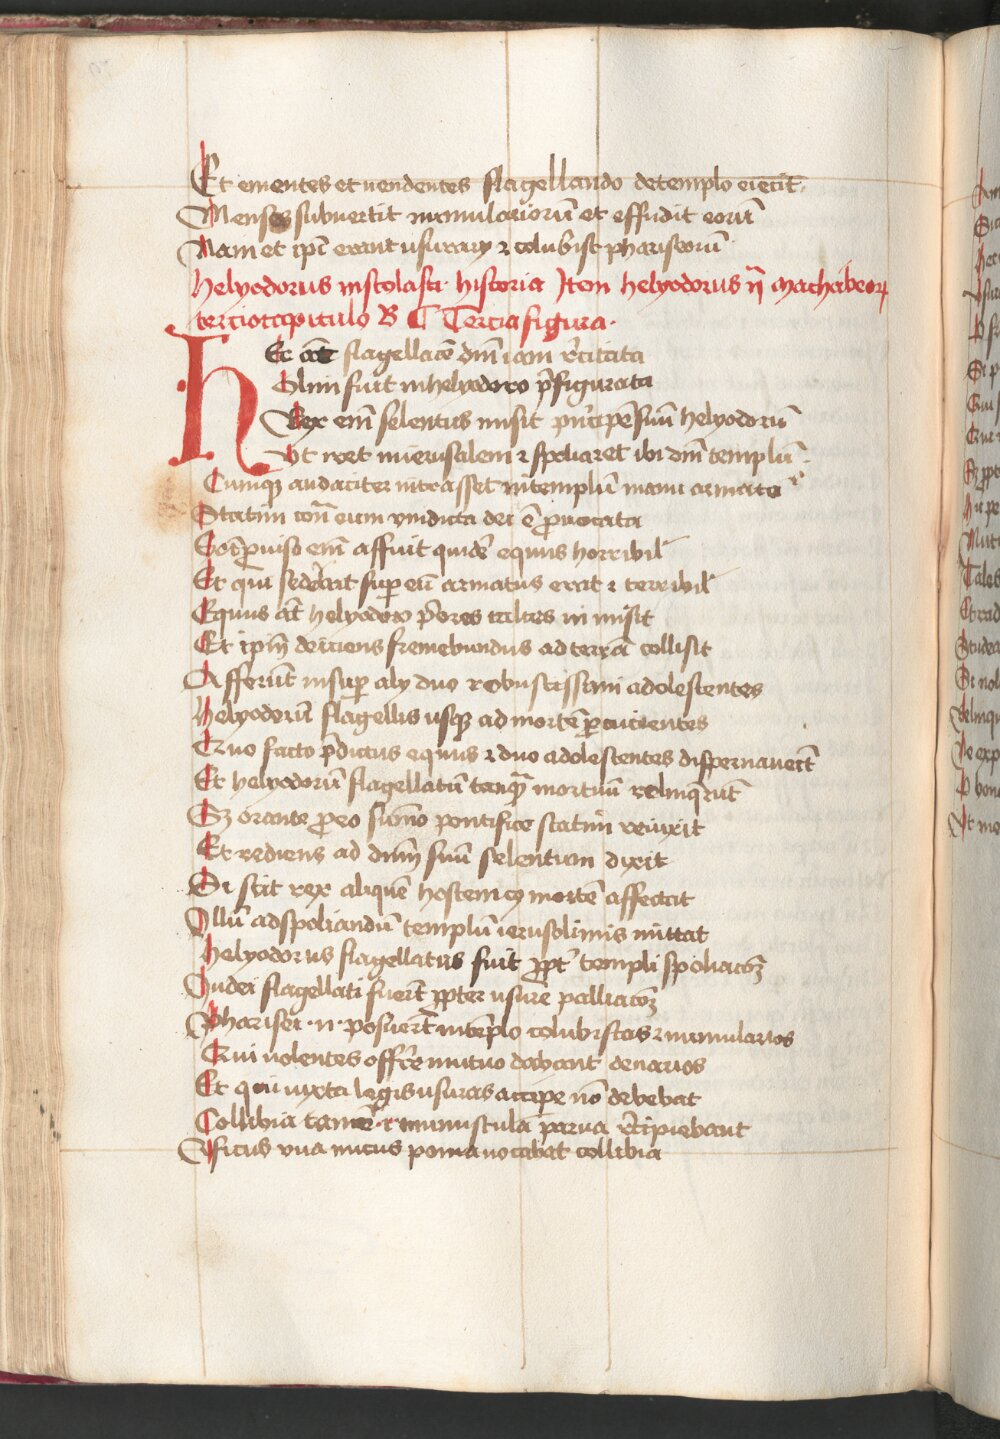 Et ementes et uendentes flagellando de templo eiecit
Mensas subuertit numulariorū et effudit eorū
Nam et ipī erant usurary ⁊ colubiste phariseorū
helyodorus in scolasti· historia Item helyodorus ij machabeoꝝ
tercio capitulo B C Tercia figura·
Hec aūt flagellacō dnī iam recitata
Olim fuit in helyodoro p̄figurata
Rex enī selentus misit pncipē suū helyodorū
Vt iret in ierusalem ⁊ spoliaret ibi dnī templū
Cumqꝫ audaciter intrasset in templū manu armata
Statim cont̄ eum vindicta dei ē ꝓuocata
Et qui sedebat suꝑ eū armatus erat ⁊ terribil'
Equus aūt helyodoro p̄ores calces in misit
Et ipm̄ deiciens fremebundus ad terrā collisit
Afferūt insuꝑ aly duo robustissimi adolescentes
helyodorū flagellis usqꝫ ad mortē ꝑcucientes
Quo facto p̄dictus equus ⁊ duo adolescentes disperauerūt
Et helyodorū flagellatū tanqꝫ mortuū relinqrūt
Sꝫ orante ꝓ eo sūmo pontifice statim reuixit
Et rediens ad dnm̄ suū selentum dixit
Si scit rex aliquē hostem cꝰ mortē affectat
Illū ad spoliandū templū ierusolimis mittat
helyodorus flagellatus fuit ꝓpt' templi spoliacōꝫ
Iudei flagellati fuerūt ꝓpter usure palliacōꝫ
Pharisei ·n· posuerūt in tēplo colubistas ⁊ numularios
Qui uolentes offerre mutuo dabant denarios
Et q̄ iuxta legis usuras accipe nō debebat
Collibia tamē ·i· munuscula parua recipiebant
Ficus vua nuces poma uocabat collibia